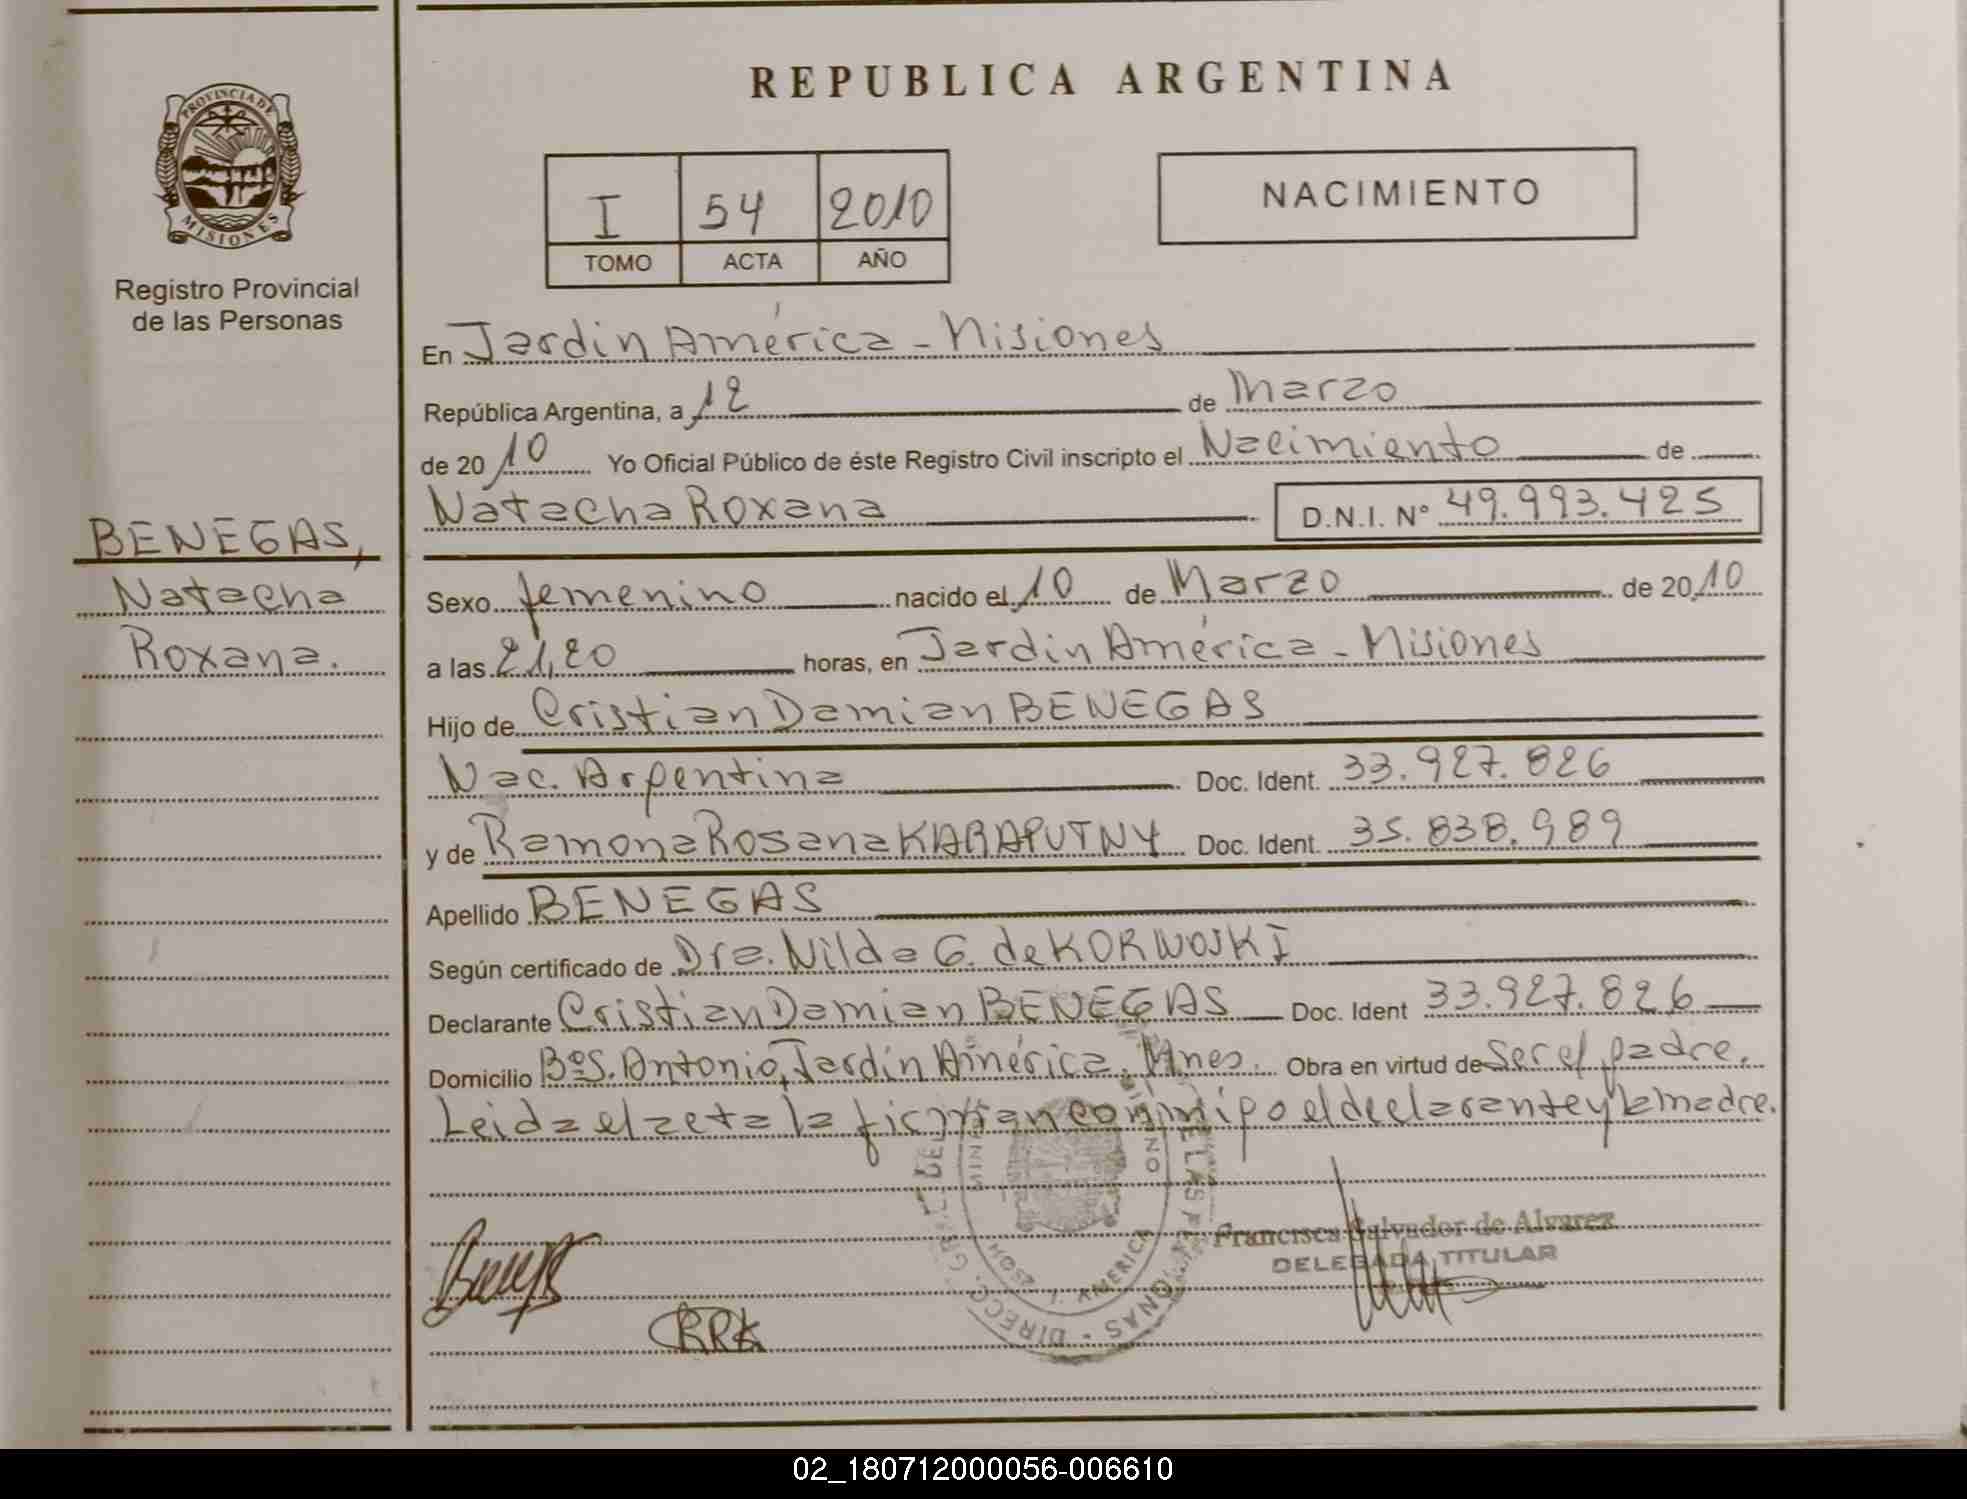 PROVINCIA DE
MISIONES
Registro Provincial
de las Personas
BENEGAS,
Natacha
Roxana.
REPUBLICA ARGENTINA
I 54 2010
TOMO ACTA AÑO
NACIMIENTO
En Jardin América - Misiones
República Argentina, a 12 de Marzo
de 20 10 Yo Oficial Público de éste Registro Civil inscripto el Nacimiento de
Natacha Roxana D.N.I. Nº 49.993.425
Sexo femenino nacido el 10 de Marzo de 20 10
a las 21,20 horas, en Jardin América - Misiones
Hijo de Cristian Damian BENEGAS
Nac. Argentina Doc. Ident. 33.927.826
y de Ramona Rosana KARAPUTNY Doc. Ident. 35.838.989
Apellido BENEGAS
Según certificado de Dra. Nilda G. de KORNOSKI
Declarante Cristian Damian BENEGAS Doc. Ident 33.927.826
Domicilio Bº S. Antonio, Jardín América, Mnes. Obra en virtud de ser el padre.
Leida el acta la firman conmigo el declarante y la madre.
Francisca Salvador de Alvarez
DELEGADA TITULAR
RRK
J. AMERICA
02_180712000056-006610